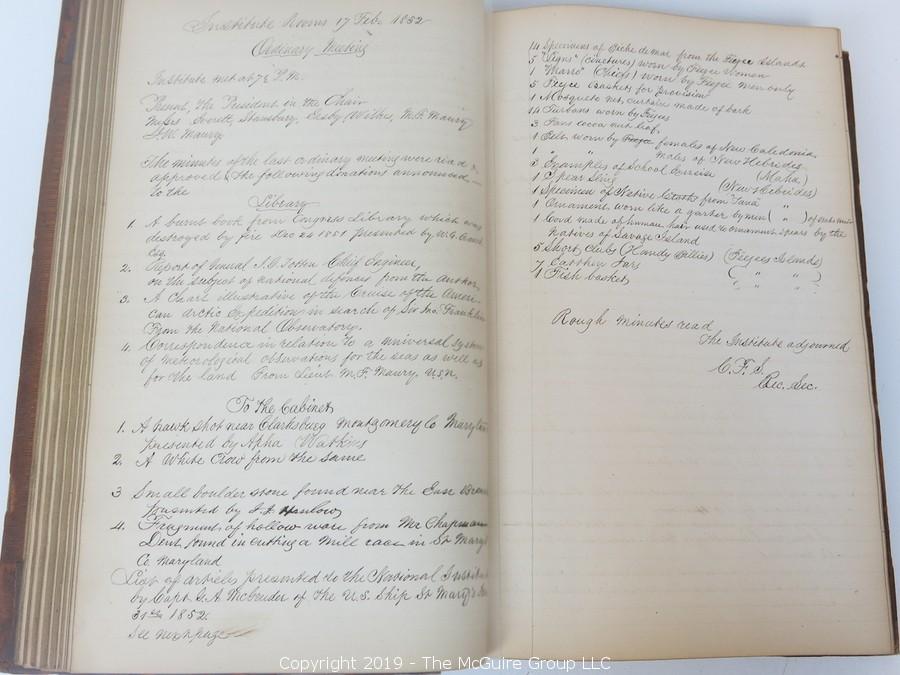 Institute Rooms 17 Feb. 1852
Ordinary Meeting
Institute met at 7½ P.M.
Present, the President in the Chair
Messrs Everett, Stansbury, Wilkes, M.F. Maury
W. Maury
The minutes of the last ordinary meeting were read
approved & the following donations announced
to the
Library
1. A burnt book from Congress Library which was
destroyed by fire Dec 24 1851 presented by W.G.
Esq.
2. Report of General J.G. Totten Chief Engineer,
on the subject of national defences from the Author
3. A Chart illustrative of the Cruise of the Ameri-
can Arctic Expedition in search of Sir Jno. Franklin
From the National Observatory.
4. Correspondence in relation to a universal system
of meteorological observations for the seas as well as
for the land From Lieut. M.F. Maury. U.S.N.
To the Cabinet
1. A hawk shot near Clarksburg Montgomery Co Maryland
presented by Watkins
2. A White Crow from the same
3 Small boulder stone found near the East
presented by
4. Fragments of hollow ware from Mr Chapman
Dent found in cutting a mill race in St Mary's
Co. Maryland
List of articles presented to the National Institute
by Capt. G.A. Magruder of the U.S. Ship St Mary's
31st 1852.
See next page
14 Specimens of Biche de mar from the Feejee Islands
5 (cinctures) worn by Feejee Women
1 "Marro" (Chiefs) worn by Feejee men only
5 Feejee baskets for provision
1 Mosqueto net, curtain made of bark
14 Turbans worn by Feejees
3 Fans cocoa nut leaf.
1 Belt worn by Feejee females of New Caledonia
1 " " males of New Hebrides
3 Examples of School Exercise
1 Spear Sling (New Hebrides)
1 Specimen of Native Cloths from Tana "
1 Ornament worn like a garter by men ( " )
1 Cord made of human hair used to ornament spears by the
Natives of Savage Island
5 Short Clubs (Feejees Islands)
7 Earthen Jars ( " " )
1 Fish basket ( " " )
Rough minutes read
The Institute adjourned
C.F.S.
Rec. Sec.
Copyright 2019 - The McGuire Group LLC